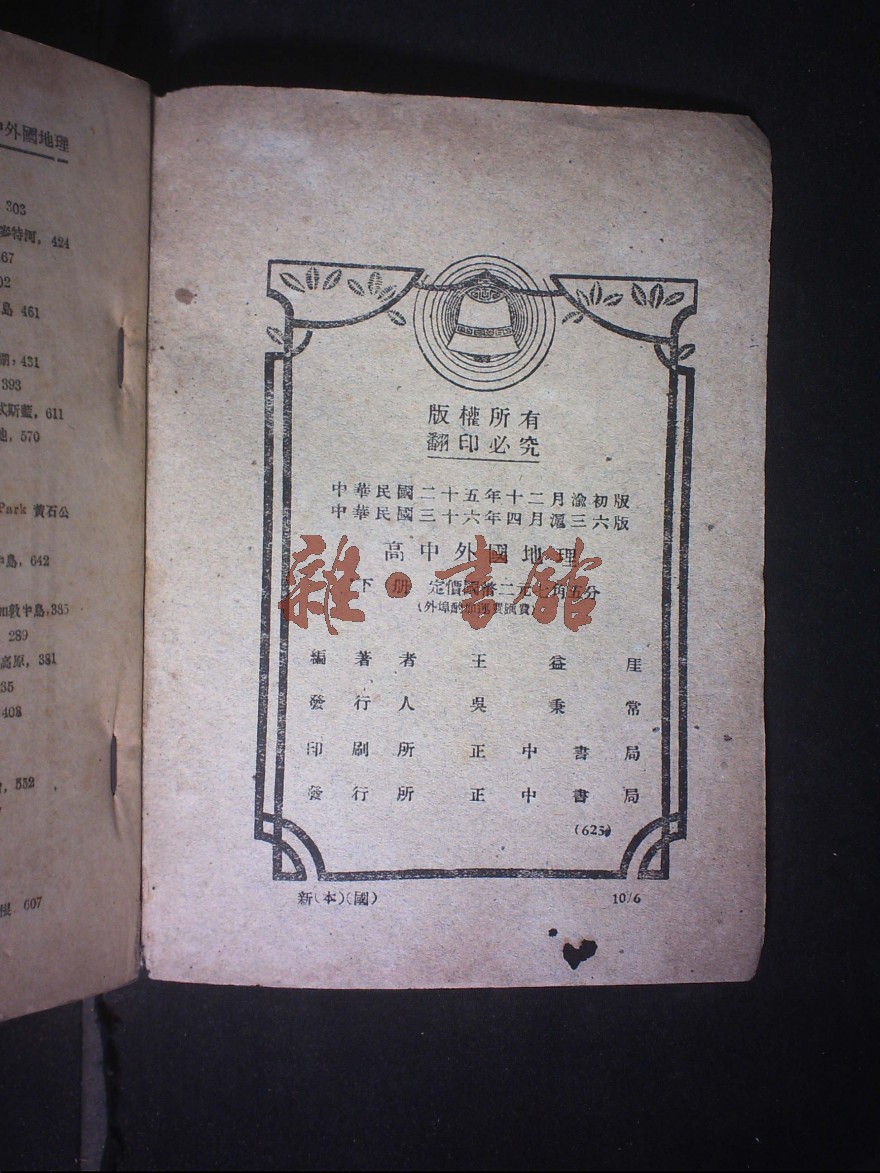 中外國地理
303
麥特河, 424
461
431
393
式斯藍, 611
570
Park 黃石公
642
385
289
高原, 381
408
552
607
版權所有
翻印必究
中華民國二十五年十二月渝初版
中華民國三十六年四月滬三六版
高中外國地理
下册 定價國幣二元七角五分
(外埠酌加運費匯費)
編著者 王益厓
發行人 吳秉常
印刷所 正中書局
發行所 正中書局
(625)
新(本)(國) 10/6
雜·書館